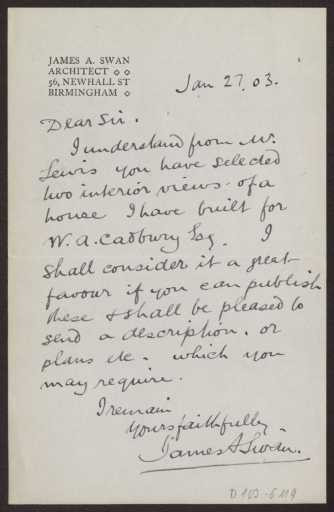 JAMES A. SWAN
ARCHITECT
56, NEWHALL ST
BIRMINGHAM
Jan 27. 03.
Dear Sir.
I understand from Mr.
Lewis you have selected
two interior views of a
house I have built for
W. A. Cadbury Esq. I
shall consider it a great
favour if you can publish
these & shall be pleased to
send a description, or
plans etc. which you
may require.
I remain
Yours faithfully
James A Swan.
D 103-6119